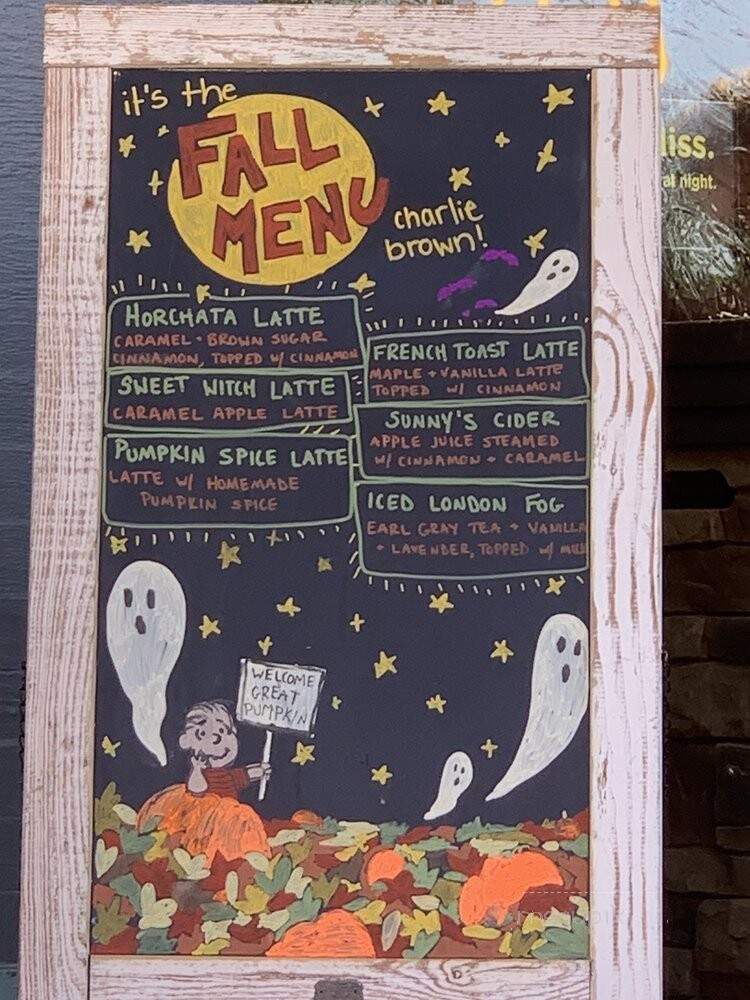 it's the
FALL
MENU
charlie
brown!
HORCHATA LATTE
CARAMEL + BROWN SUGAR
CINNAMON, TOPPED W/ CINNAMON
SWEET WITCH LATTE
CARAMEL APPLE LATTE
PUMPKIN SPICE LATTE
LATTE W/ HOMEMADE
PUMPKIN SPICE
FRENCH TOAST LATTE
MAPLE + VANILLA LATTE
TOPPED W/ CINNAMON
SUNNY'S CIDER
APPLE JUICE STEAMED
W/ CINNAMON + CARAMEL
ICED LONDON FOG
EARL GRAY TEA + VANILLA
+ LAVENDER, TOPPED W/ MILK
WELCOME
GREAT
PUMPKIN
liss.
night.